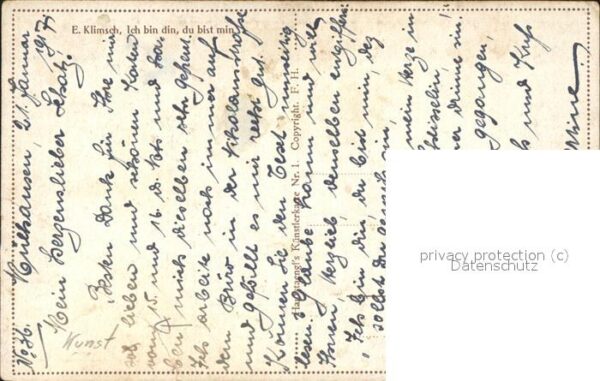 E. Klimsch, Ich bin din, du bist min
Hanfstaengl's Künstlerkarte Nr. 1. Copyright. F. H.
No 36.
Mülhausen, 21. Januar 1917
Mein herzenslieber Schatz!
Besten Dank für Ihre mir
so lieben und schönen Karten
vom 15. und 16. ds. Mts und
mich dieselben sehr gefreut.
Ich arbeite noch immer auf
dem Büro in der Nikolausstrasse
und gefällt es mir recht gut.
Können Sie den Text
lesen. Ich glaube kaum und will
Ihnen, Herzlieb, denselben
"Ich bin din, du bist min, des
sollst du gewiss sin,
meinem Herze in
das Schlüsselin,
immer drinne sin.
gegangen,
und Kuss
Kunst
privacy protection (c)
Datenschutz